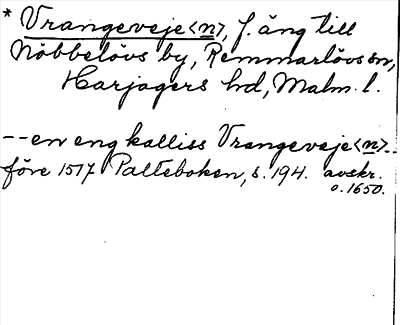 * Vrangeveje<n>, f. äng till
Nöbbelövs by, Remmarlövs sn,
Harjagers hd, Malm. l.
-- en eng kalliss Vrangeveje<n> --
före 1517 Palteboken, s. 194. avskr.
o. 1650.